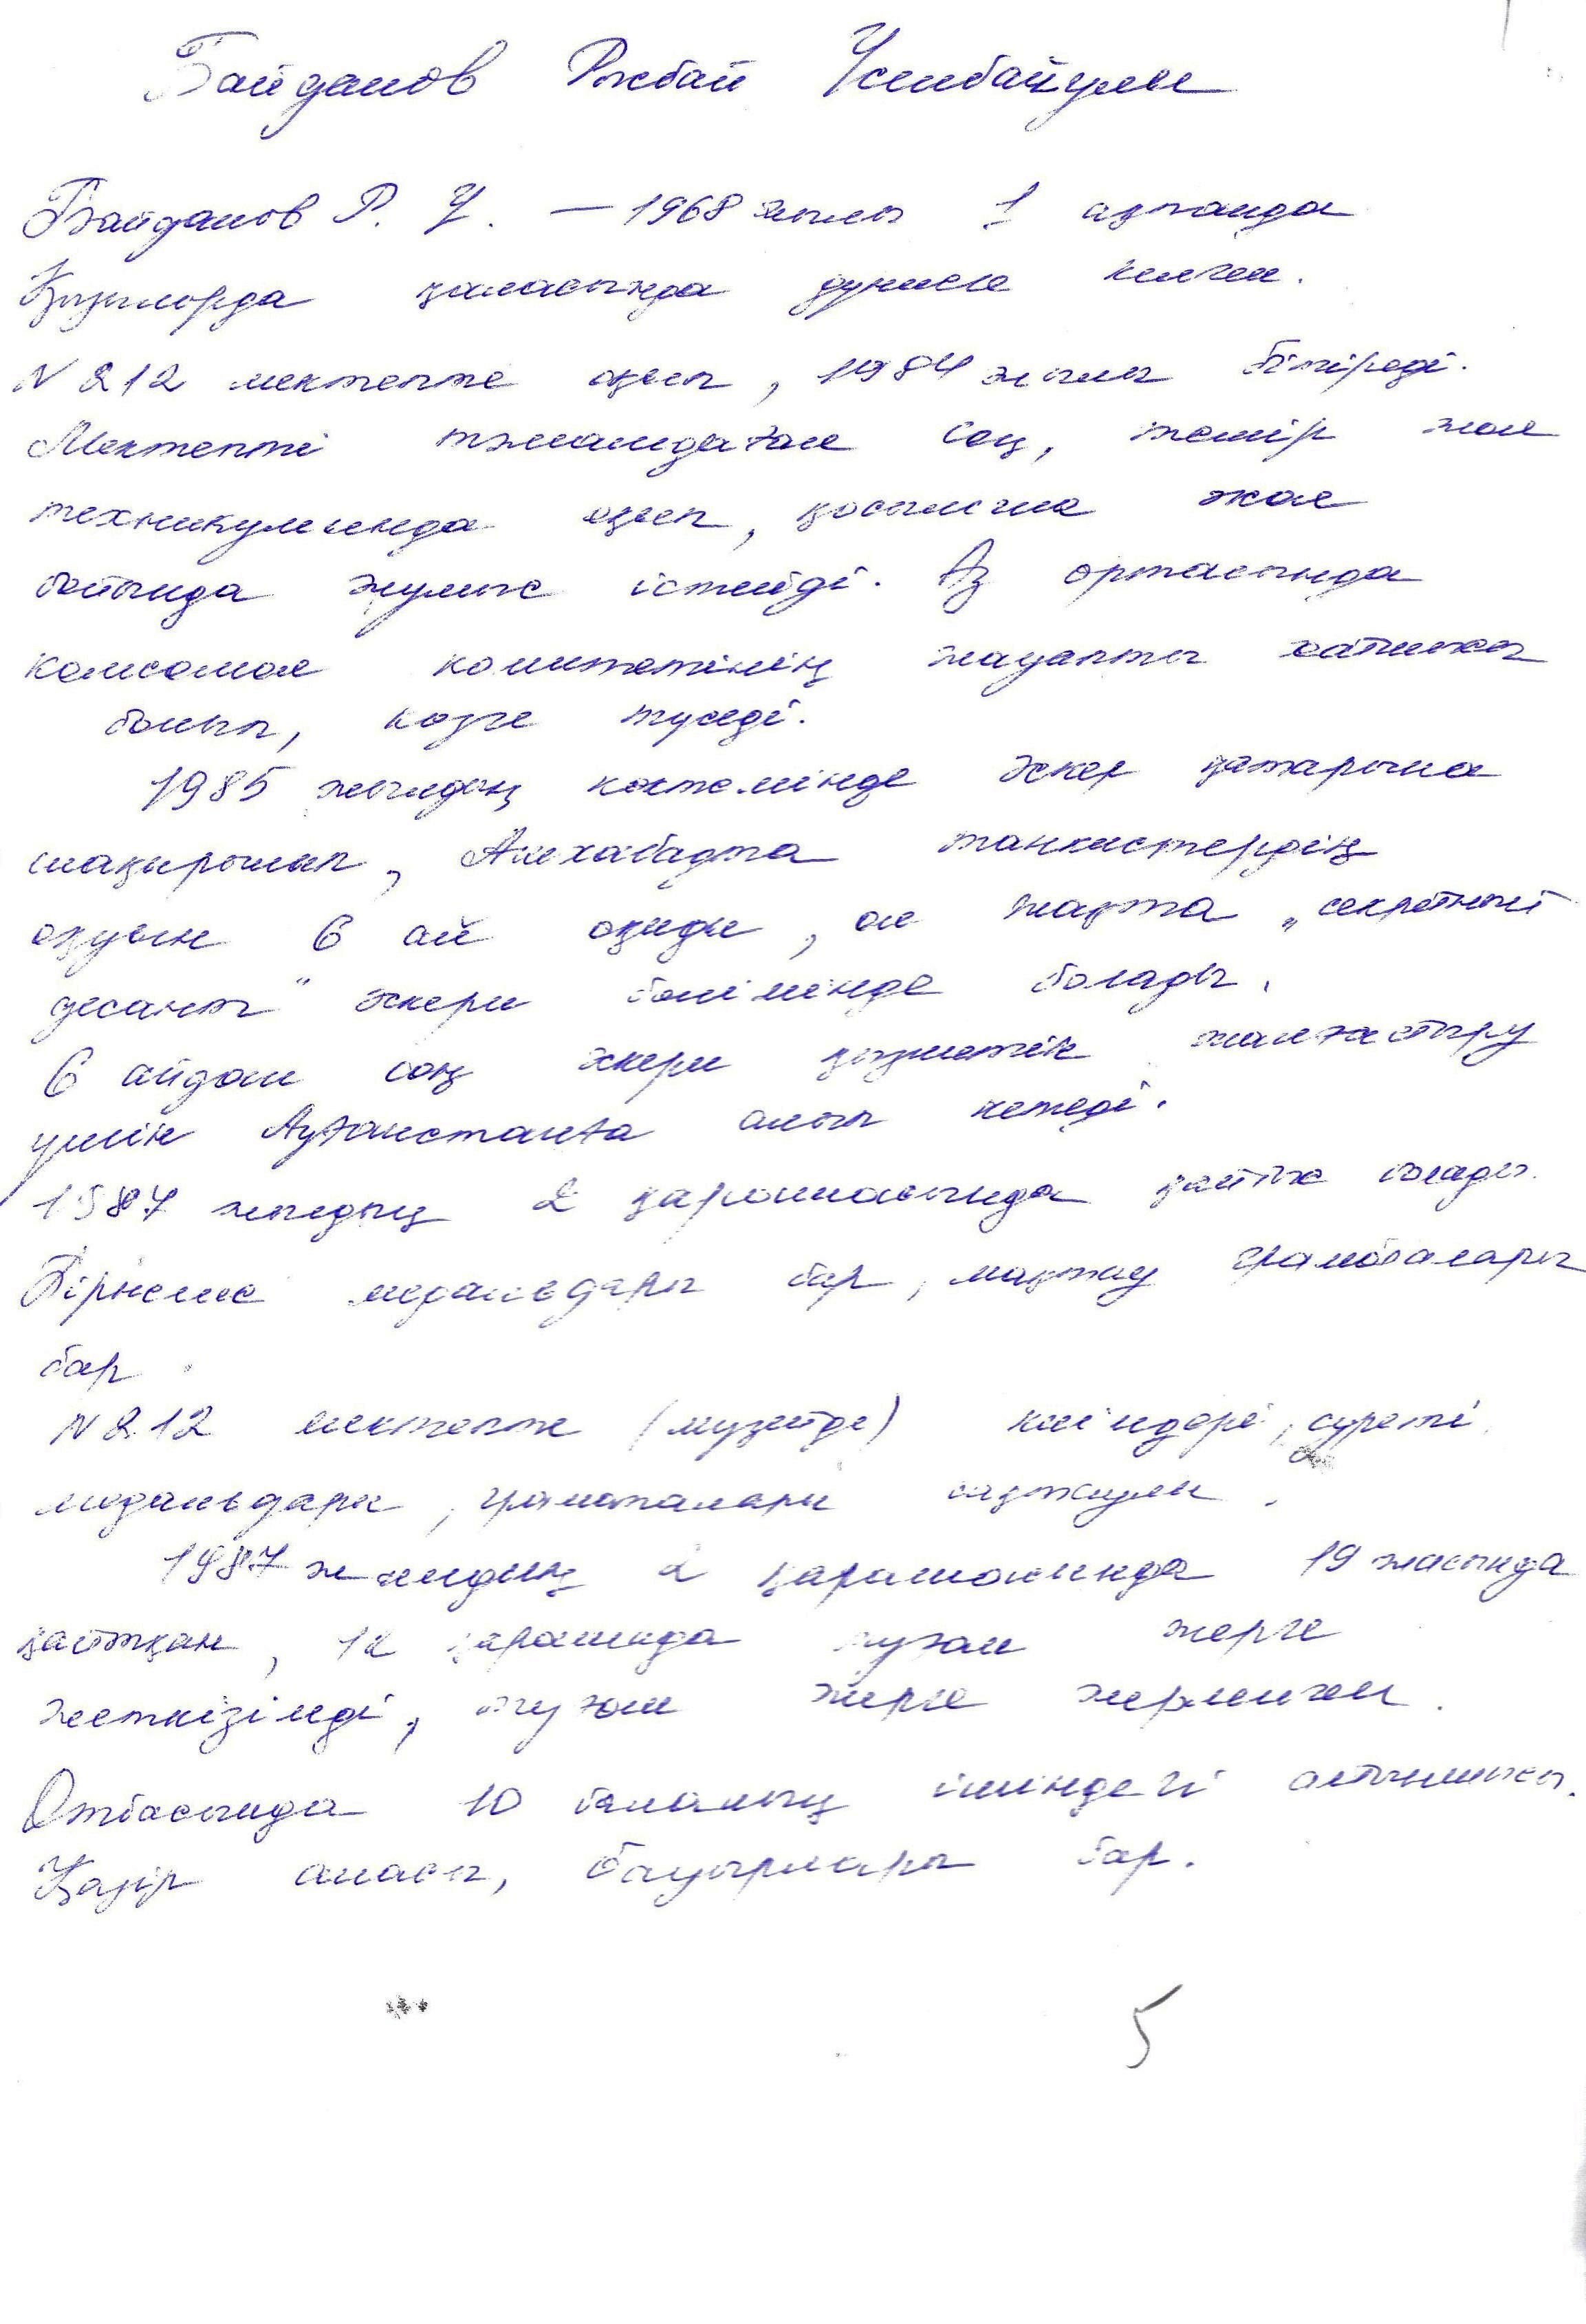 Байданов Рысбай Үсенбайұлы
Байданов Р. Ү. — 1968 жылы 1 ақпанда
Қызылорда қаласында дүниеге келген.
N 212 мектепте оқып, 1984 жылы бітіреді.
Мектепті тәмамдаған соң, темір жол
техникумында оқып, қосымша жол
бойында жұмыс істейді. Өз ортасында
комсомол комитетінің жауапты хатшысы
болып, көзге түседі.
1985 жылдың көктемінде әскер қатарына
шақырылып, Ашхабадта танкистердің
оқуын 6 ай оқиды, ол жақта „секретный
десант" әскери бөлімінде болады.
6 айдан соң әскери қызметін жалғастыру
үшін Ауғанстанға алып кетеді.
1987 жылдың 2 қарашасында қайтыс болады.
Бірнеше медальдары бар, мақтау грамоталары
бар.
N 212 мектепте (музейде) киімдері, суреті,
медальдары, грамоталары сақтаулы.
1987 жылдың 2 қарашасында 19 жасында
қайтқан, 12 қарашада туған жерге
жеткізілді, туған жерге жерленген.
Отбасында 10 баланың ішіндегі алтыншысы.
Қазір анасы, бауырлары бар.
5